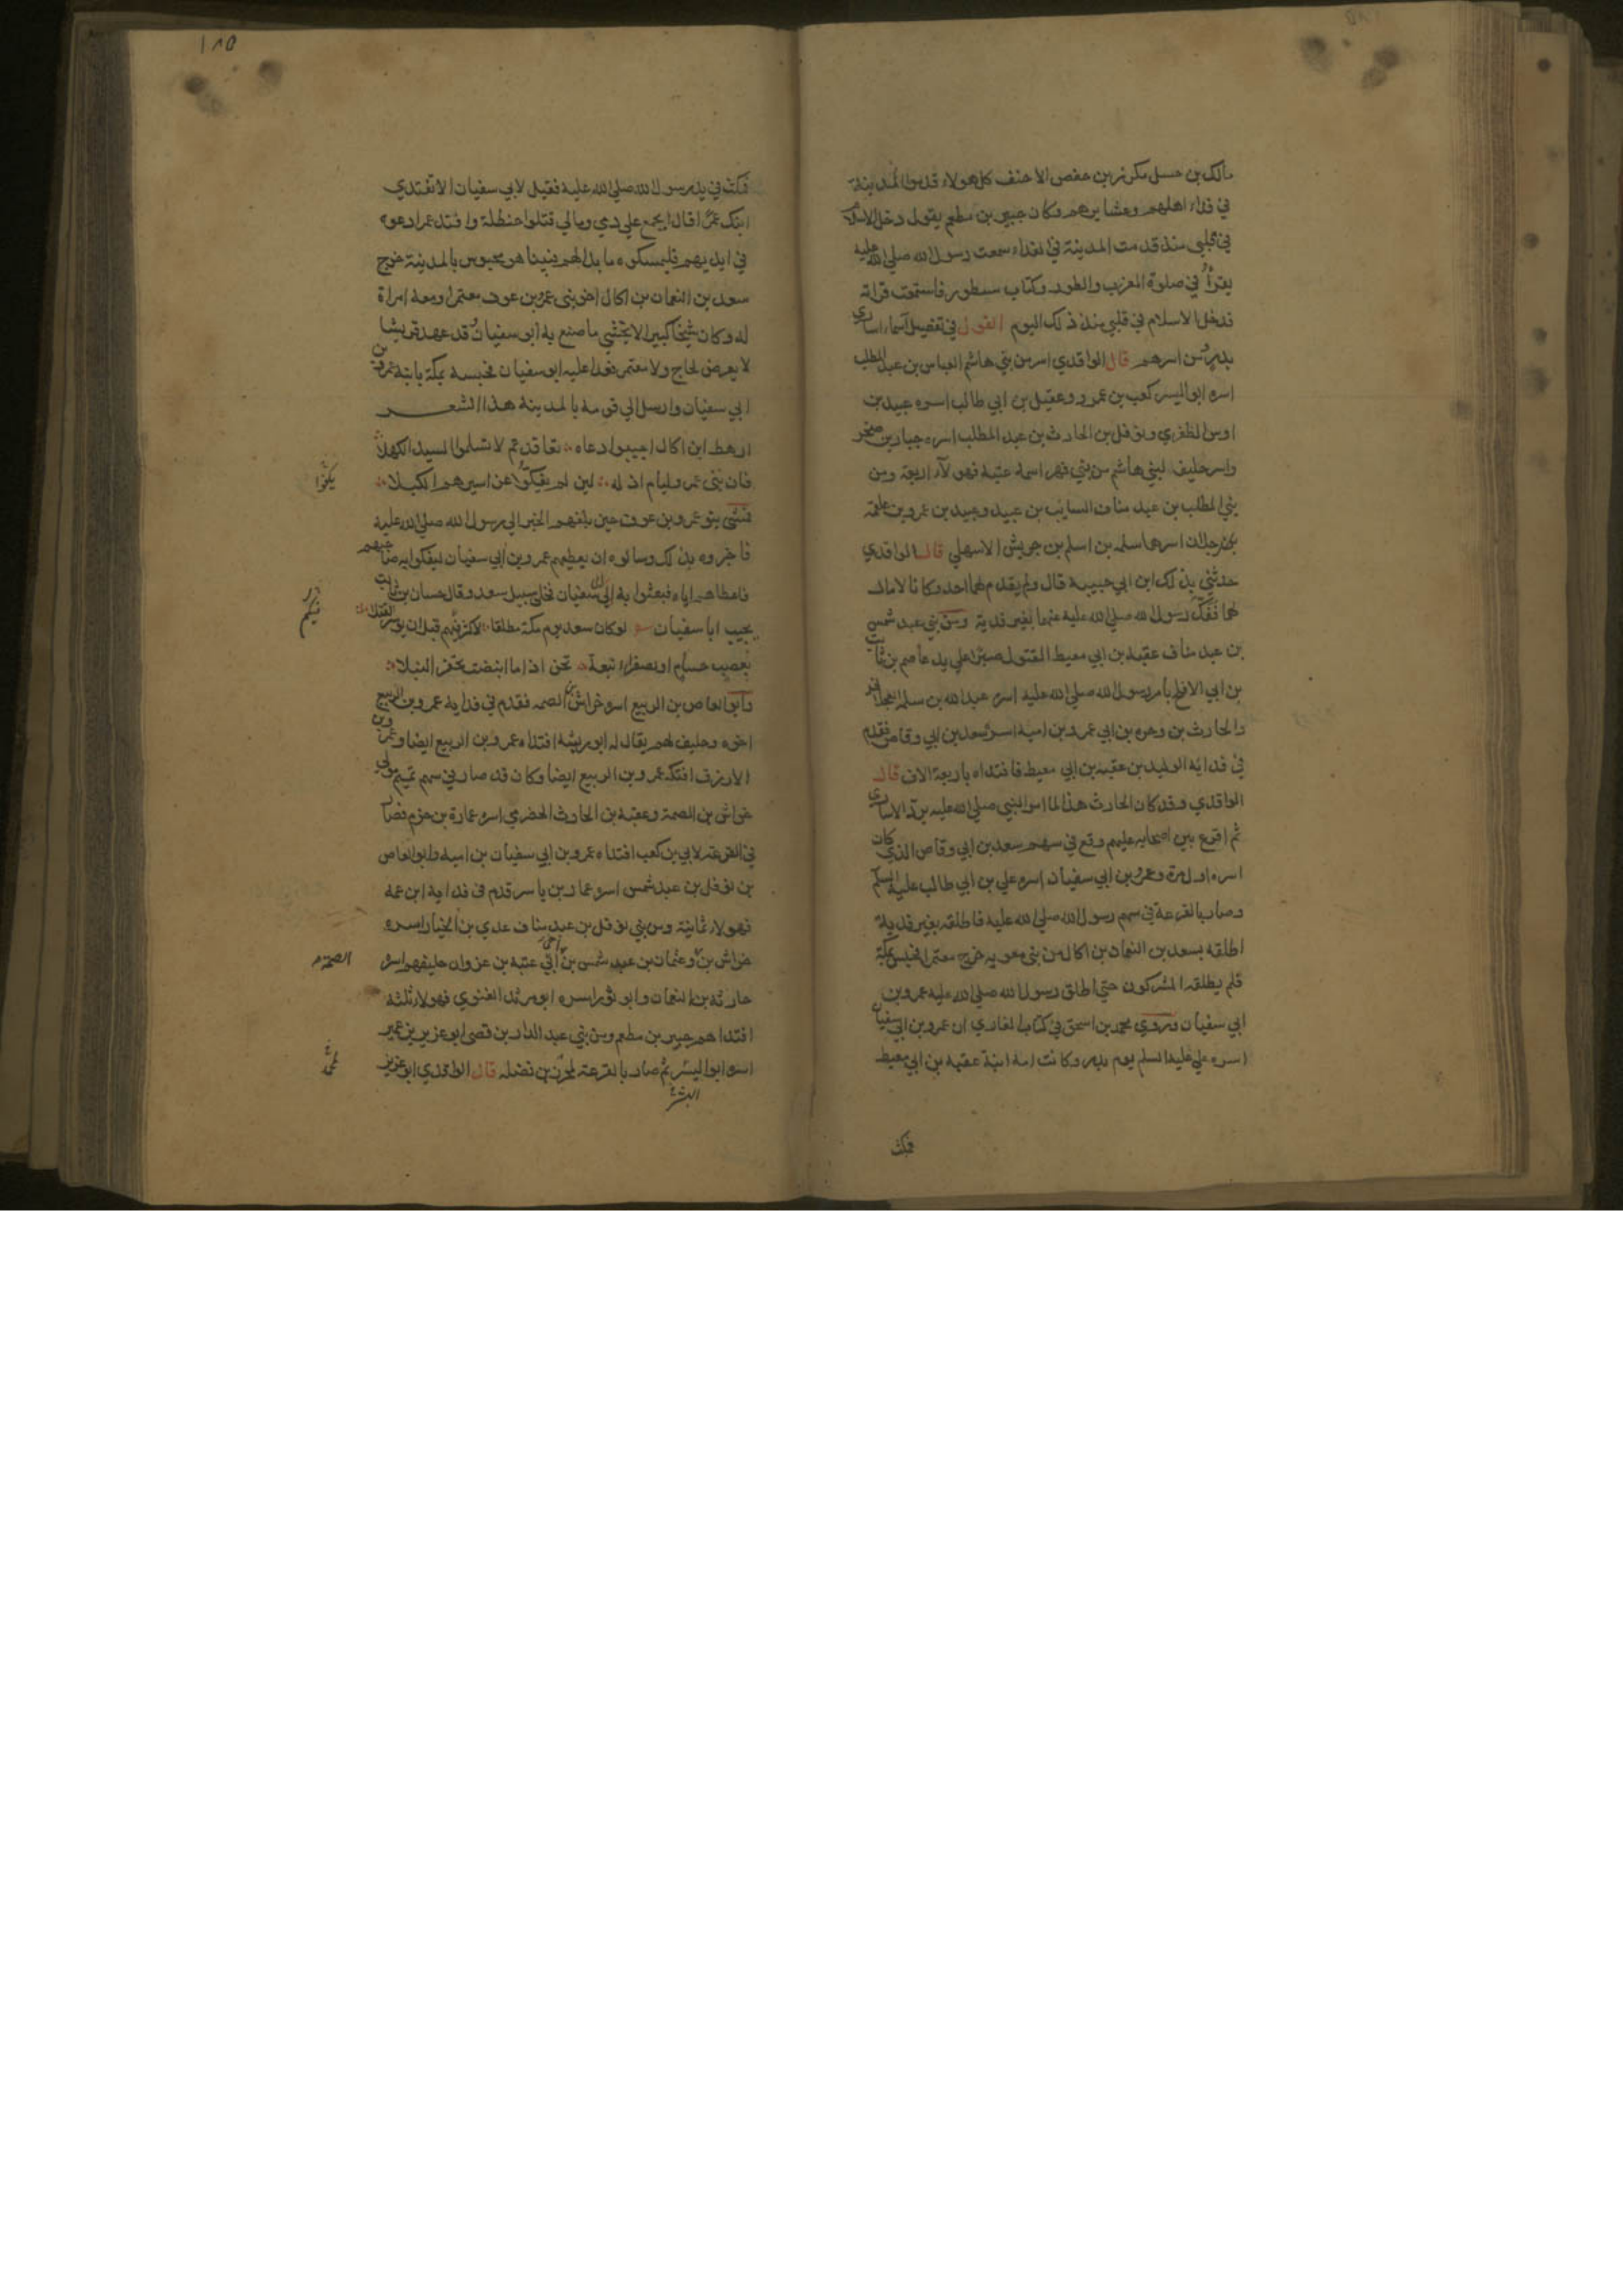 مالك بن حسل مكرز بن حفص الاحنف كل هولاء قدموا المدينة
في فداء اهلهم وعشايرهم وكان جبير بن مطعم يقول دخل الاسلام
في قلبي منذ قدمت المدينة في الفداء سمعت رسول الله صلي الله عليه
يقرأ في صلوة المغرب والطور وكتاب مسطور فاستمعت قراته
فدخل الاسلام في قلبي منذ ذلك اليوم القول في تفصيل اسماء اساري
بدر ومن اسرهم قال الواقدي اسر من بني هاشم العباس بن عبد المطلب
اسره ابو اليسر كعب بن عمرو وعقيل بن ابي طالب اسره عبيد بن
اوس الظفري ونوفل بن الحارث بن عبد المطلب اسره جبار بن صخر
واسر حليف لبني هاشم من بني فهر اسمه عتبة فهولاء اربعة ومن
بني المطلب بن عبد مناف السايب بن عبيد وعبيد بن عمرو بن علقمة
رجلان اسرهما سلمه بن اسلم بن حريش الاسهلي قال الواقدي
حدثني بذلك ابن ابي حبيبة قال ولم يقدم لهما احد وكانا لا مال
لهما ففك رسول الله صلي الله عليه عنهما بغير فدية ومن بني عبد شمس
بن عبد مناف عقبة بن ابي معيط المقتول صبرا علي يد عاصم بن ثابت
بن ابي الافلح بامر رسول الله صلي الله عليه اسره عبد الله بن سلمه العجلاني
والحارث بن وحره بن ابي عمرو بن امية اسره سعد بن ابي وقاص فقدم
في فدايه الوليد بن عقبة بن ابي معيط فافتداه باربعة الاف قال
الواقدي وقد كان الحارث هذا لما امر النبي صلي الله عليه برد الاساري
ثم اقرع بين اصحابه عليهم وقع في سهم سعد بن ابي وقاص الذي كان
اسره اول مرة وعمرو بن ابي سفيان اسره علي بن ابي طالب عليه السلم
وصار بالقرعة في سهم رسول الله صلي الله عليه فاطلقه بغير فدية
اطلقه بسعد بن النعمان بن اكال من بني معويه خرج معتمرا فحبس بمكة
فلم يطلقه المشركون حتي اطلق رسول الله صلي الله عليه عمرو بن
ابي سفيان وروي محمد بن اسحق في كتاب المغازي ان عمرو بن ابي سفيان
اسره علي عليه السلم يوم بدر وكانت امه ابنة عقبة بن ابي معيط
فمكث
١٨٥
فمكث في يد رسول الله صلي الله عليه فقيل لابي سفيان الا تفتدي
ابنك عمرا قال ايجمع علي دمي ومالي قتلوا حنظلة وافتدي عمرا دعوه
في ايديهم فليمسكوه ما بدا لهم فبينا هو محبوس بالمدينة خرج
سعد بن النعمان بن اكال اخو بني عمرو بن عوف معتمرا ومعه امراة
له وكان شيخا كبيرا لا يخشي ما صنع به ابو سفيان وقد عهد قريشا
لا يعرض لحاج ولا معتمر فعدا عليه ابو سفيان فحبسه بمكة بابنه عمرو بن
ابي سفيان وارسل الي قومه بالمدينة هذا الشعر
ارهط ابن اكال اجيبوا دعاه تعاقدتم لا تسلموا السيد الكهلا
فان بني عمرو ليام اذله لين لم يفكوا عن اسيرهم الكبلا
يكفوا
فمشي بنو عمرو بن عوف حين بلغهم الخبر الي رسول الله صلي الله عليه
فاخبروه بذلك وسالوه ان يعطيهم عمرو بن ابي سفيان ليفكوا به صاحبهم
فاعطاهم اياه فبعثوا به الي ابي سفيان فخلي سبيل سعد وقال حسان بن ثابت
يجيب ابا سفيان لو كان سعد يوم مكة مطلقا لاكثر فيكم قبل ان يوسر القتلا
فيكم
بعضب حسام او بصفراء نبعة تحن اذا ما انبضت تحفز النبلا
وابو العاص بن الربيع اسره خراش بن الصمه فقدم في فدايه عمرو بن الربيع
اخوه وحليف لهم يقال له ابو ريشة افتداه عمرو بن الربيع ايضا وعمرو بن
الازرق افتكه عمرو بن الربيع ايضا وكان قد صار في سهم تميم مولي
خراش بن الصمة وعقبة بن الحارث الحضرمي اسره عمارة بن حزم فصار
في القرعة لابي بن كعب افتداه عمرو بن ابي سفيان بن امية وابو العاص
بن نوفل بن عبد شمس اسره عمار بن ياسر قدم في فدايه ابن عمه
فهولاء ثمانية ومن بني نوفل بن عبد مناف عدي بن الخيار اسره
خراش بن وعثمان بن عبد شمس بن اخي عتبة بن غزوان حليفهم اسره
الصمة
حارثة بن النعمان وابو ثور اسره ابو مرثد الغنوي فهولاء ثلثة
افتداهم جبير بن مطعم ومن بني عبد الدار بن قصي ابو عزيز بن عمير
اسره ابو اليسر ثم صار بالقرعة لمحرز بن نضله قال الواقدي ابو عزيز